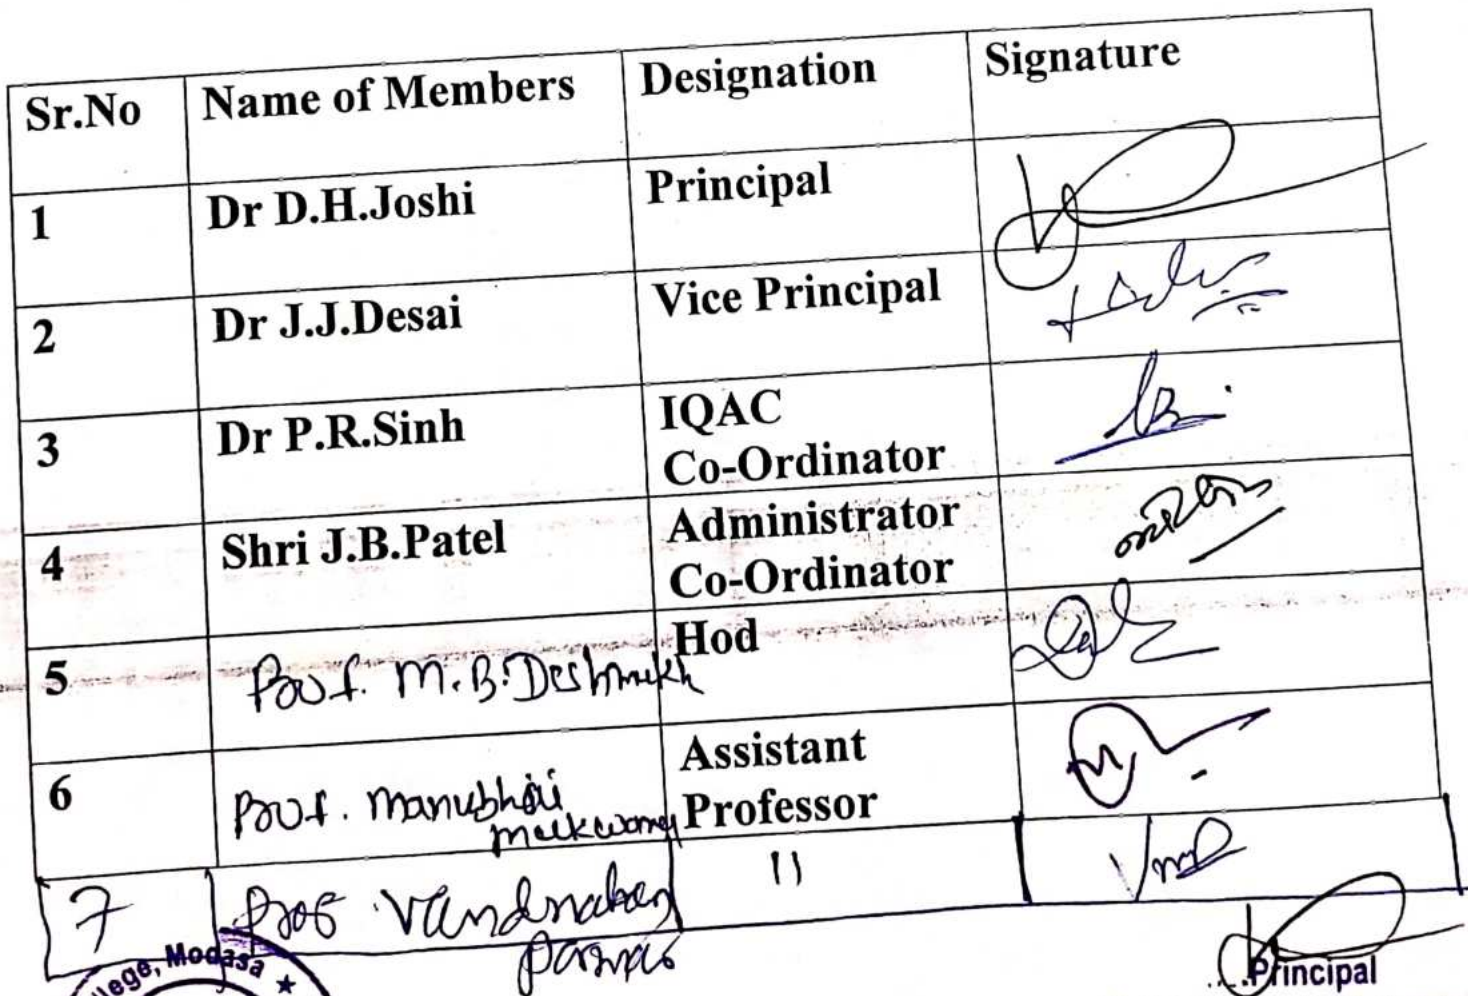 Sr.No Name of Members Designation Signature
1 Dr D.H.Joshi Principal
2 Dr J.J.Desai Vice Principal
3 Dr P.R.Sinh IQAC
Co-Ordinator
4 Shri J.B.Patel Administrator
Co-Ordinator
5 Prof. M.B.Deshmukh Hod
6 Prof. Manubhai Assistant
Professor
7 Prof Vandnaben 11
Parmar
Principal
Modasa